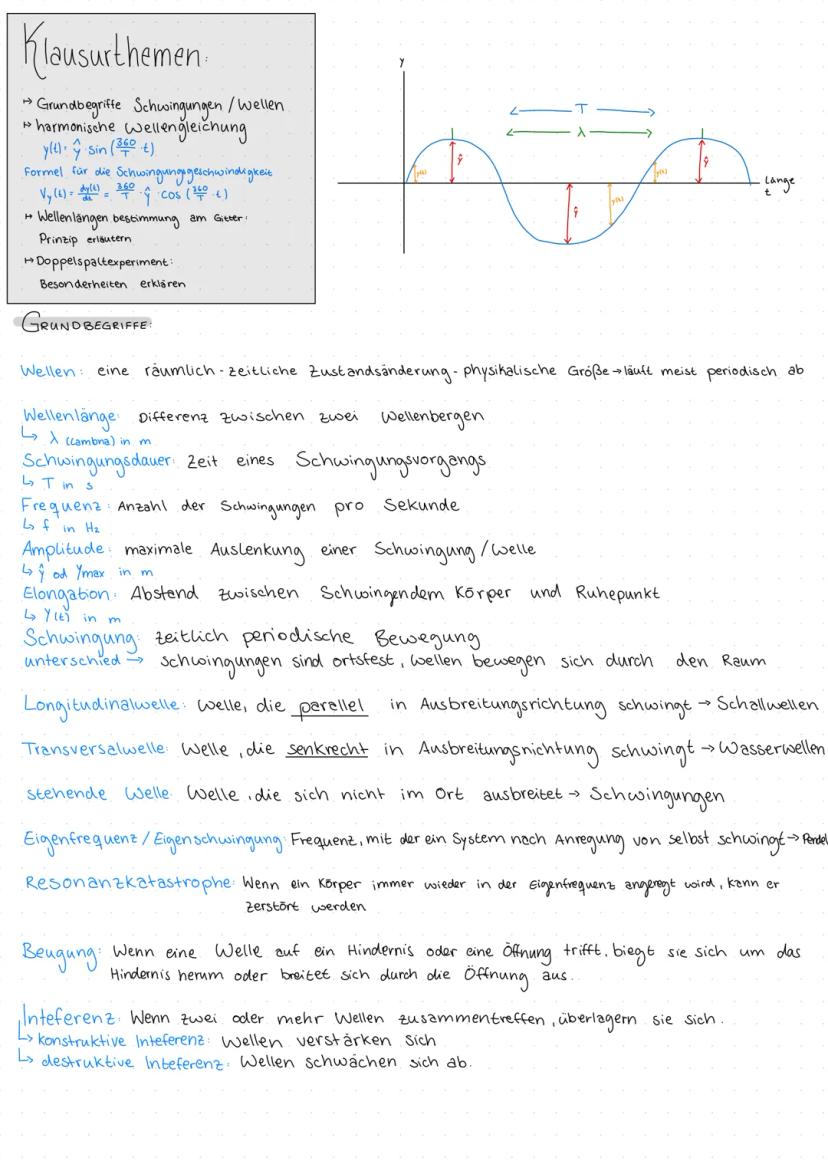 Klausurthemen:
↦ Grundbegriffe Schwingungen / Wellen
↦ harmonische Wellengleichung
y(t) = ŷ · sin (360/T · t)
Formel für die Schwingungsgeschwindigkeit
Vy(t) = dy(t)/dt = 360/T · ŷ · cos (360/T · t)
↦ Wellenlängen bestimmung am Gitter:
Prinzip erläutern
↦ Doppelspaltexperiment:
Besonderheiten erklären
y
T
λ
ŷ
y(t)
ŷ
y(t)
y(t)
ŷ
Länge
t
GRUNDBEGRIFFE:
Wellen: eine räumlich-zeitliche Zustandsänderung - physikalische Größe → läuft meist periodisch ab
Wellenlänge: Differenz zwischen zwei Wellenbergen
↳ λ (Lambna) in m
Schwingungsdauer: Zeit eines Schwingungsvorgangs
↳ T in s
Frequenz: Anzahl der Schwingungen pro Sekunde
↳ f in Hz
Amplitude: maximale Auslenkung einer Schwingung / Welle
↳ ŷ od Ymax in m
Elongation: Abstand zwischen Schwingendem Körper und Ruhepunkt
↳ Y(t) in m
Schwingung: zeitlich periodische Bewegung
unterschied → schwingungen sind ortsfest, Wellen bewegen sich durch den Raum
Longitudinalwelle: Welle, die parallel in Ausbreitungsrichtung schwingt → Schallwellen
Transversalwelle: Welle, die senkrecht in Ausbreitungsrichtung schwingt → Wasserwellen
stehende Welle: Welle, die sich nicht im Ort ausbreitet → Schwingungen
Eigenfrequenz / Eigenschwingung: Frequenz, mit der ein System nach Anregung von selbst schwingt → Pendel
Resonanzkatastrophe: Wenn ein Körper immer wieder in der Eigenfrequenz angeregt wird, kann er
zerstört werden
Beugung: Wenn eine Welle auf ein Hindernis oder eine Öffnung trifft, biegt sie sich um das
Hindernis herum oder breitet sich durch die Öffnung aus.
Inteferenz: Wenn zwei oder mehr Wellen zusammentreffen, überlagern sie sich.
↳ konstruktive Inteferenz: Wellen verstärken sich
↳ destruktive Inteferenz: Wellen schwächen sich ab.